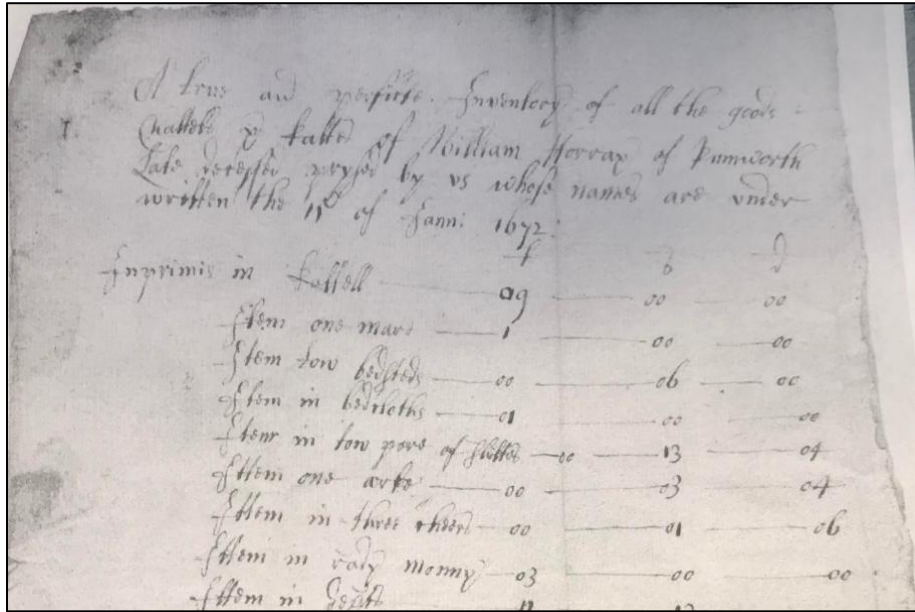 A true and perfecte Inventory of all the goods
Chattels & kattell of William Horrax of Pumworth
Late decessed prysed by us whose names are under
written the 11th of Janu: 1672:
£ s d
Inprimis in kattell 09 00 00
Item one mare 1 00 00
Item tow bedsteds 00 06 00
Item in bedcloths 01 00 00
Item in tow pare of 00 13 04
Ittem one arke 00 03 04
Ittem in three cheers 00 01 06
Ittem in rady monny 03 00 00
Ittem in